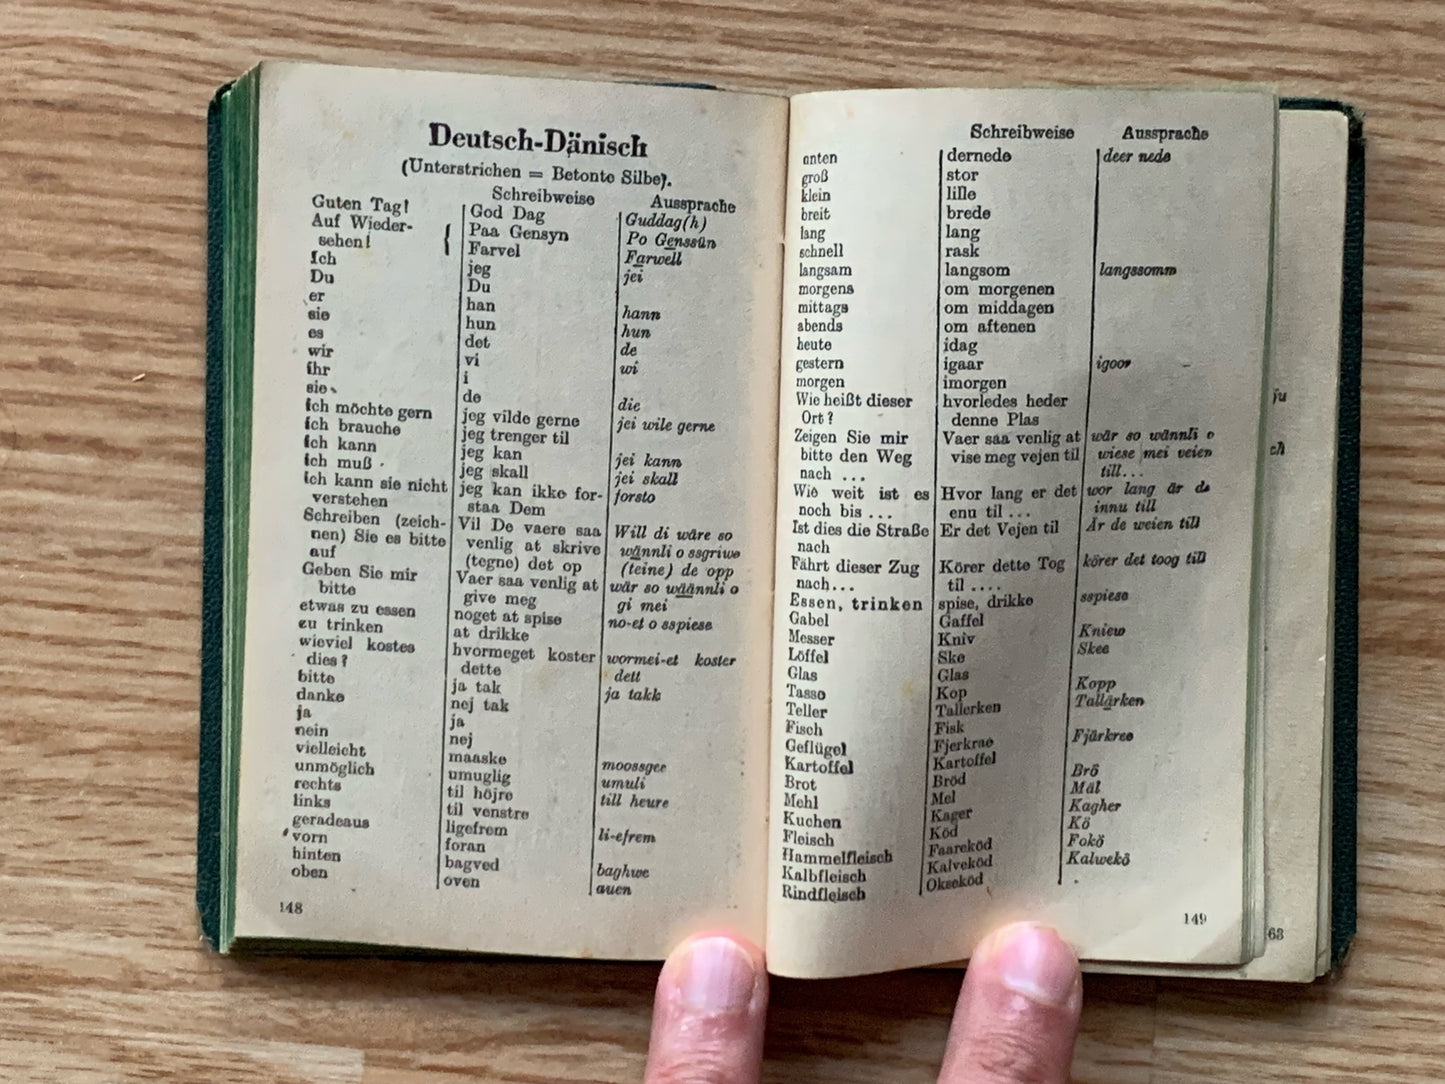 Deutsch-Dänisch
(Unterstrichen = Betonte Silbe).
Schreibweise Aussprache
Guten Tag! God Dag Guddag(h)
Auf Wieder- { Paa Gensyn Po Genssün
sehen! Farvel Farwell
Ich jeg jei
Du Du
er han hann
sie hun hun
es det de
wir vi wi
ihr i
sie de die
Ich möchte gern jeg vilde gerne jei wile gerne
Ich brauche jeg trenger til
Ich kann jeg kan jei kann
Ich muß jeg skall jei skall
Ich kann sie nicht jeg kan ikke for- forsto
verstehen staa Dem
Schreiben (zeich- Vil De vaere saa Will di wäre so
nen) Sie es bitte venlig at skrive wännli o ssgriwe
auf (tegne) det op (teine) de opp
Geben Sie mir Vaer saa venlig at wär so wäännli o
bitte give meg gi mei
etwas zu essen noget at spise no-et o sspiese
zu trinken at drikke
wieviel kostes hvormeget koster wormei-et koster
dies? dette dett
bitte ja tak ja takk
danke nej tak
ja ja
nein nej
vielleicht maaske moossgee
unmöglich umuglig umuli
rechts til höjre till heure
links til venstre
geradeaus ligefrem li-efrem
vorn foran
hinten bagved baghwe
oben oven auen
148
Schreibweise Aussprache
unten dernede deer nede
groß stor
klein lille
breit brede
lang lang
schnell rask
langsam langsom langssomm
morgens om morgenen
mittags om middagen
abends om aftenen
heute idag
gestern igaar igoor
morgen imorgen
Wie heißt dieser hvorledes heder
Ort? denne Plas
Zeigen Sie mir Vaer saa venlig at wär so wännli o
bitte den Weg vise meg vejen til wiese mei veien
nach ... till...
Wie weit ist es Hvor lang er det wor lang är de
noch bis ... enu til ... innu till
Ist dies die Straße Er det Vejen til Är de weien till
nach
Fährt dieser Zug Körer dette Tog körer det toog till
nach... til ....
Essen, trinken spise, drikke sspiese
Gabel Gaffel
Messer Kniv Kniew
Löffel Ske Skee
Glas Glas
Tasse Kop Kopp
Teller Tallerken Tallärken
Fisch Fisk
Geflügel Fjerkrae Fjärkree
Kartoffel Kartoffel
Brot Bröd Brö
Mehl Mel Mäl
Kuchen Kager Kagher
Fleisch Köd Kö
Hammelfleisch Faareköd Fokö
Kalbfleisch Kalveköd Kalwekö
Rindfleisch Okseköd
149
63